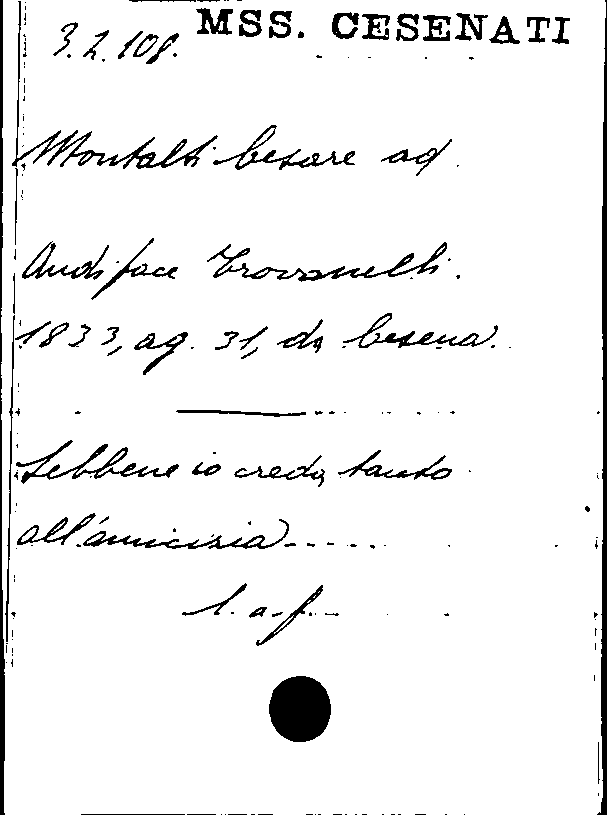 3.2.108. MSS. CESENATI
Montalti Cesare ad
Audiface Trovanelli.
1833, ag. 31, da Cesena.
Sebbene io creda tanto
all'amicizia.....
l. a. f.